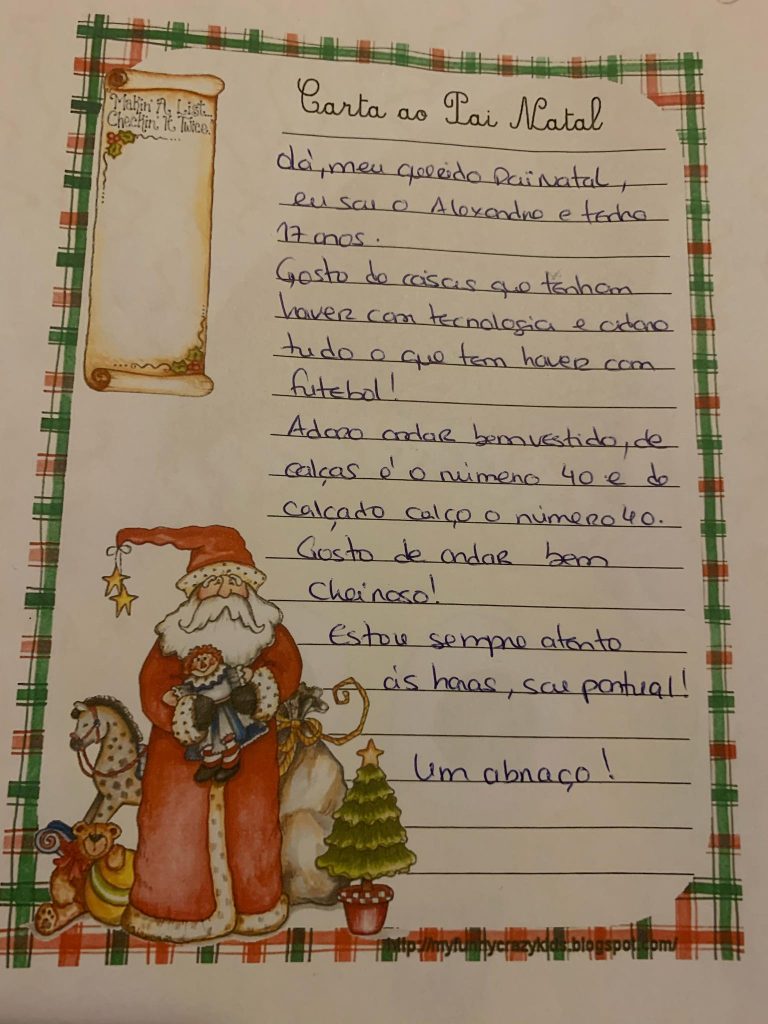 Makin' A List...
Checkin' It Twice.
Carta ao Pai Natal
Olá, meu querido Pai Natal,
eu sou o Alexandre e tenho
17 anos.
Gosto de coisas que tenham
haver com tecnologia e adoro
tudo o que tem haver com
futebol!
Adoro andar bem vestido, de
calças é o número 40 e de
calçado calço o número 40.
Gosto de andar bem
cheiroso!
Estou sempre atento
ás horas, sou pontual!
Um abraço!
http://myfunnycrazykids.blogspot.com/